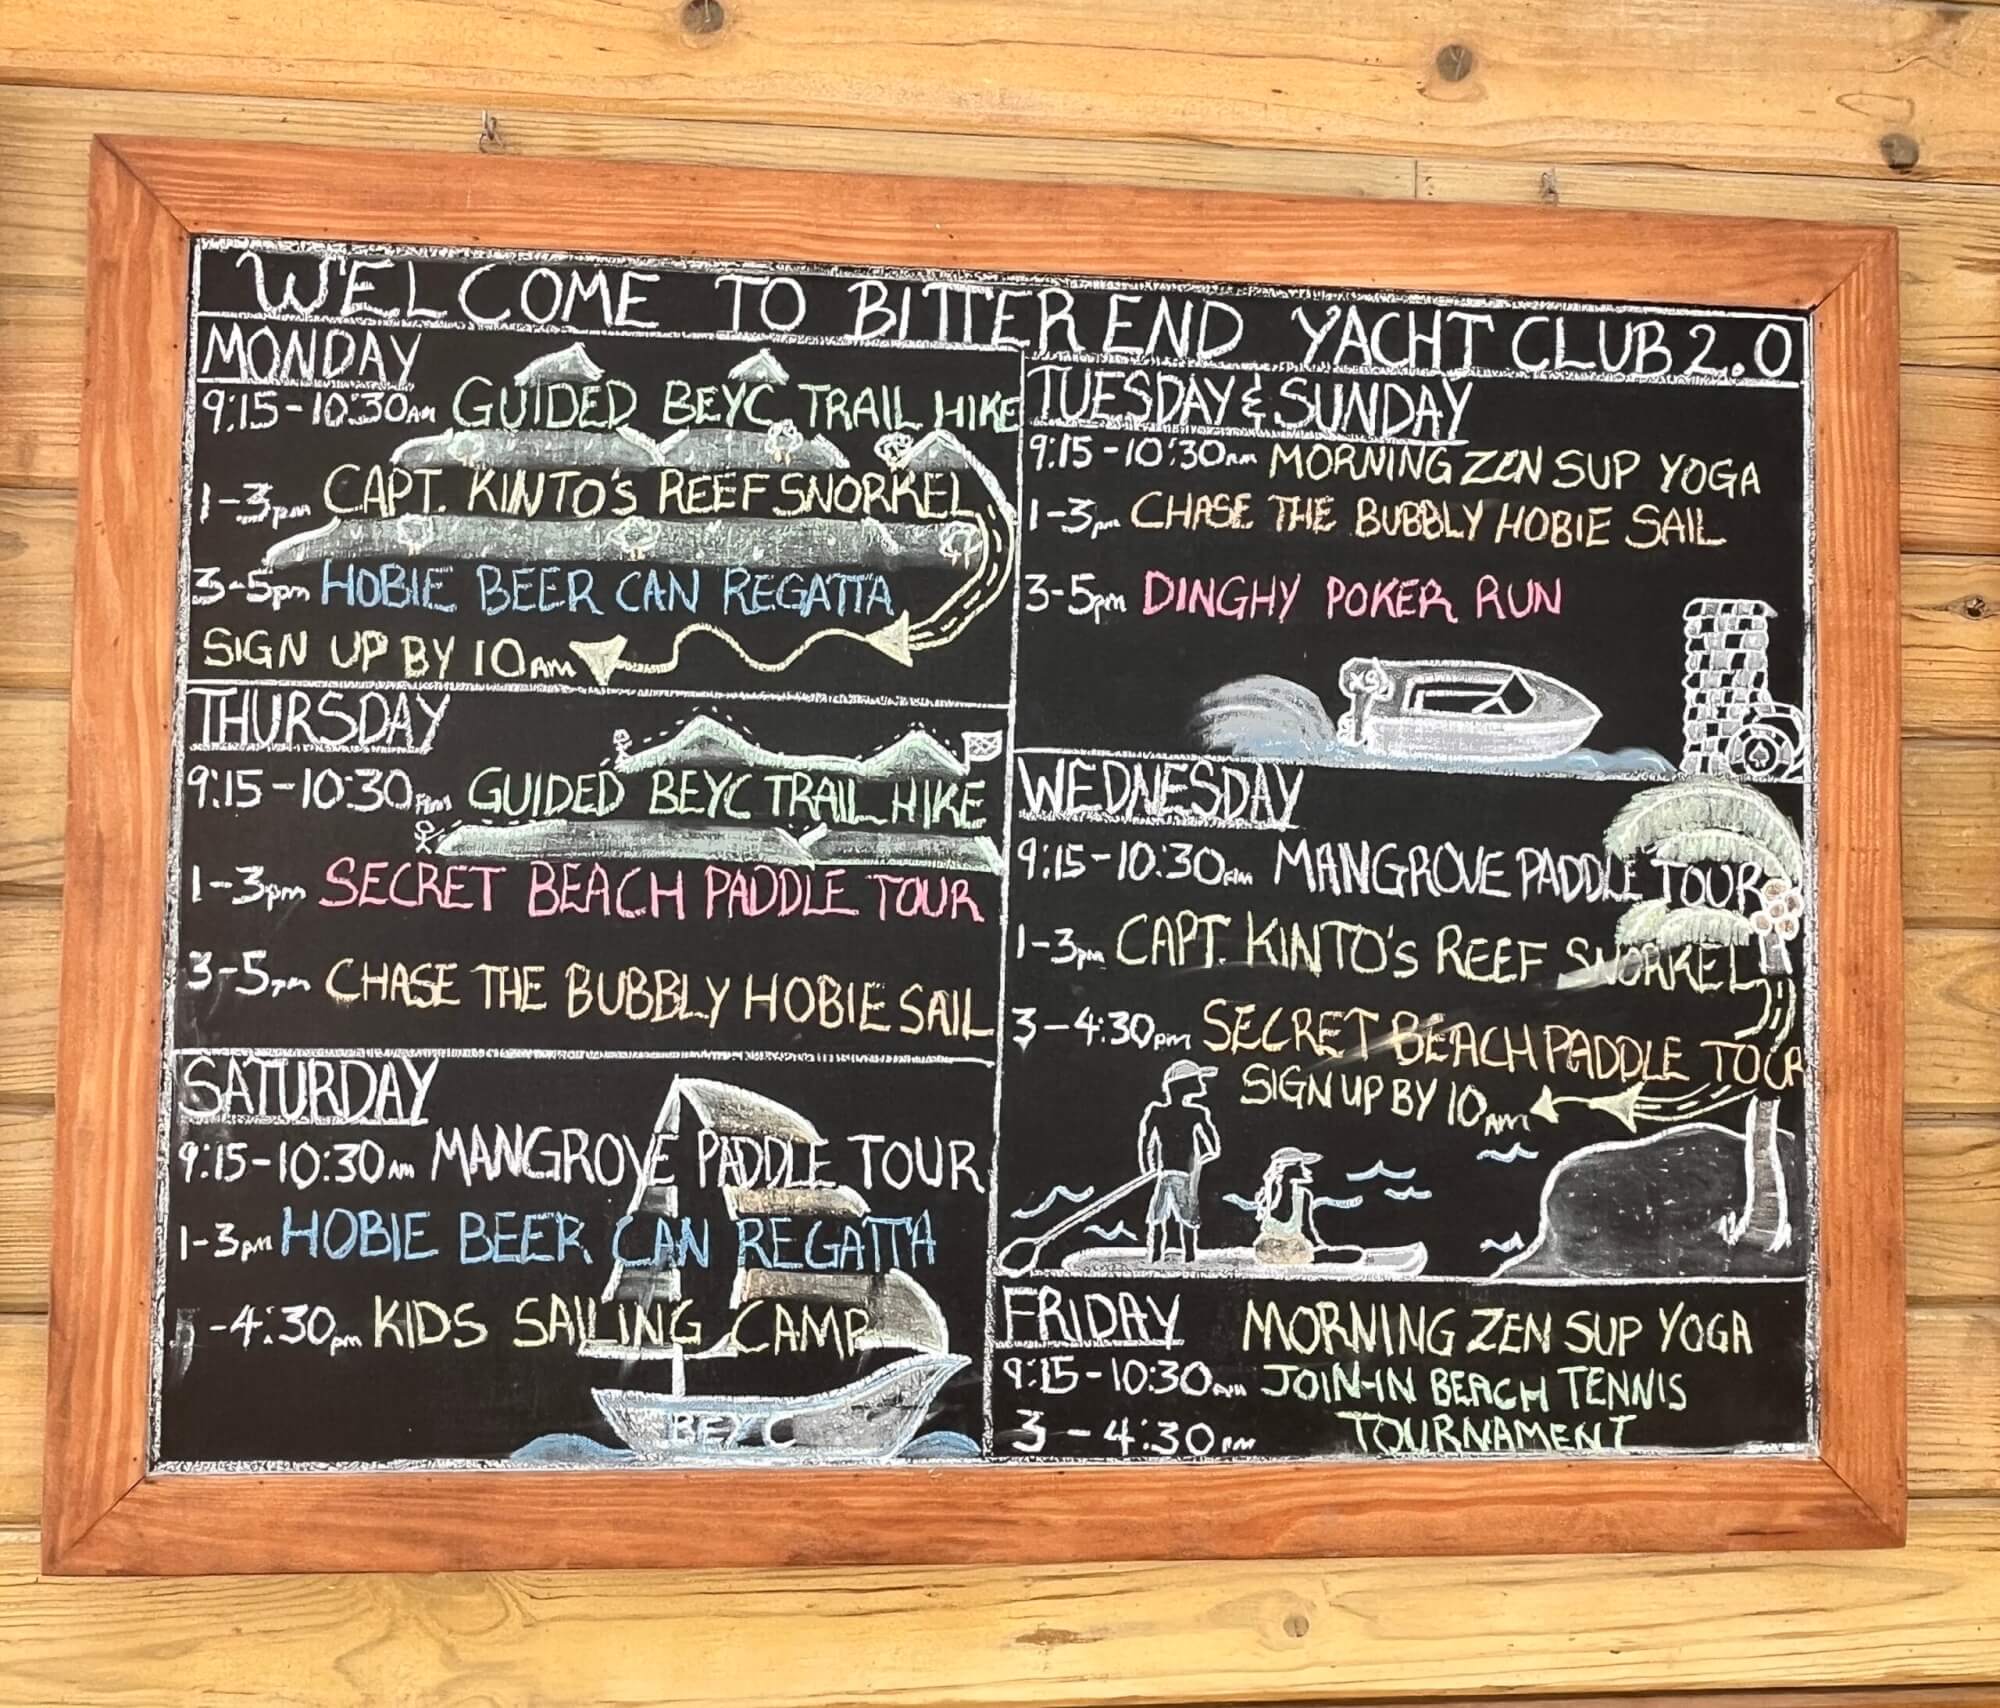 WELCOME TO BITTER END YACHT CLUB 2.0
MONDAY
9:15-10:30AM GUIDED BEYC TRAIL HIKE
1-3pm CAPT. KINTO'S REEF SNORKEL
3-5pm HOBIE BEER CAN REGATTA
SIGN UP BY 10AM
THURSDAY
9:15-10:30 GUIDED BEYC TRAIL HIKE
1-3pm SECRET BEACH PADDLE TOUR
3-5pm CHASE THE BUBBLY HOBIE SAIL
SATURDAY
9:15-10:30AM MANGROVE PADDLE TOUR
1-3pm HOBIE BEER CAN REGATTA
-4:30pm KIDS SAILING CAMP
BEYC
TUESDAY & SUNDAY
9:15-10:30AM MORNING ZEN SUP YOGA
1-3pm CHASE THE BUBBLY HOBIE SAIL
3-5pm DINGHY POKER RUN
WEDNESDAY
9:15-10:30AM MANGROVE PADDLE TOUR
1-3pm CAPT. KINTO'S REEF SNORKEL
3-4:30pm SECRET BEACH PADDLE TOUR
SIGN UP BY 10AM
FRIDAY MORNING ZEN SUP YOGA
9:15-10:30AM JOIN-IN BEACH TENNIS
3-4:30PM TOURNAMENT